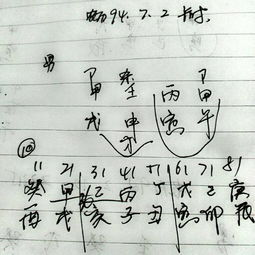 94. 7. 2
男
甲 壬 丙 甲
戌 申 寅 午
⑩
11 21 31 41 51 61 71 81
癸 甲 乙 丙 丁 戊 己 庚
酉 戌 亥 子 丑 寅 卯 辰